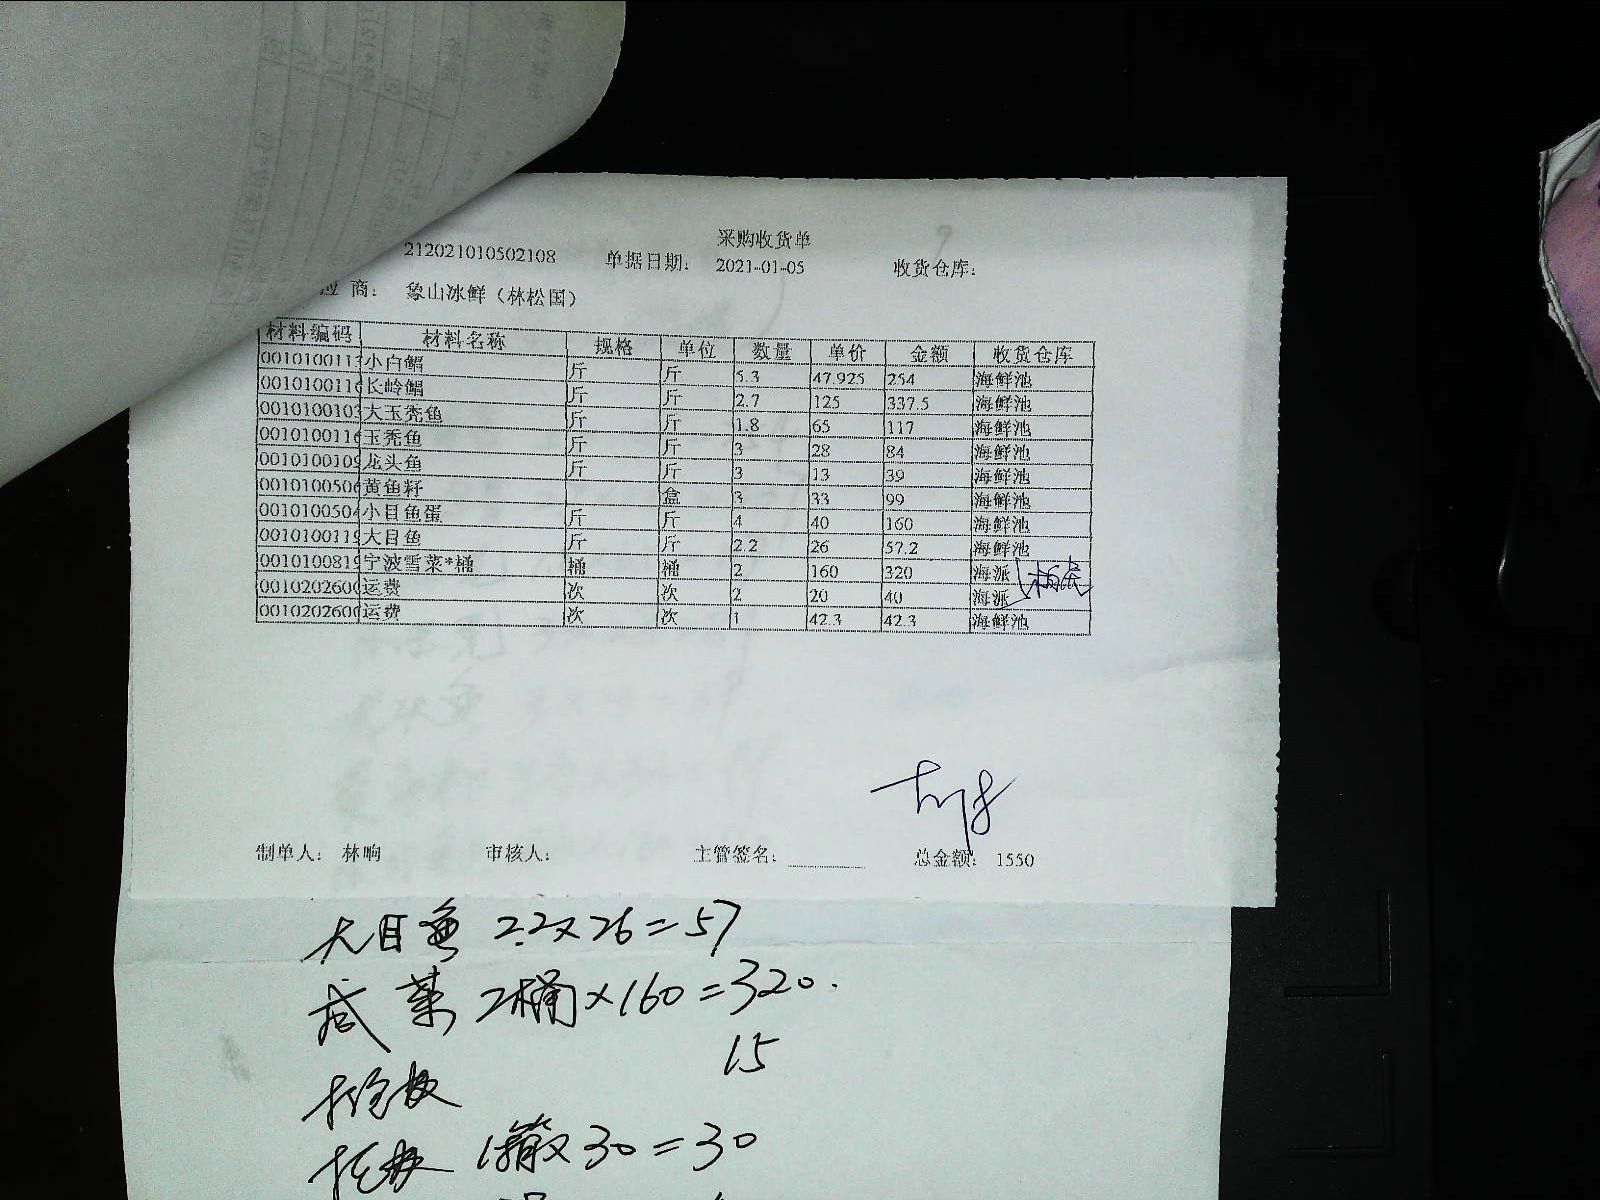 采购收货单
212021010502108 单据日期: 2021-01-05 收货仓库:
应 商: 象山冰鲜（林松国）
材料编码 材料名称 规格 单位 数量 单价 金额 收货仓库
001010011 小白鲳 斤 斤 5.3 47.925 254 海鲜池
001010011 长岭鲳 斤 斤 2.7 125 337.5 海鲜池
001010010 大玉秃鱼 斤 斤 1.8 65 117 海鲜池
001010011 玉秃鱼 斤 斤 3 28 84 海鲜池
001010010 龙头鱼 斤 斤 3 13 39 海鲜池
001010050 黄鱼籽 盒 3 33 99 海鲜池
001010050 小目鱼蛋 斤 斤 4 40 160 海鲜池
001010011 大目鱼 斤 斤 2.2 26 57.2 海鲜池
001010081 宁波雪菜*桶 桶 桶 2 160 320 海派
001020260 运费 次 次 2 20 40 海派
001020260 运费 次 次 1 42.3 42.3 海鲜池
制单人: 林响 审核人: 主管签名: 总金额: 1550
大目鱼 2.2×26=57
咸菜 2桶×160=320.
15
30=30